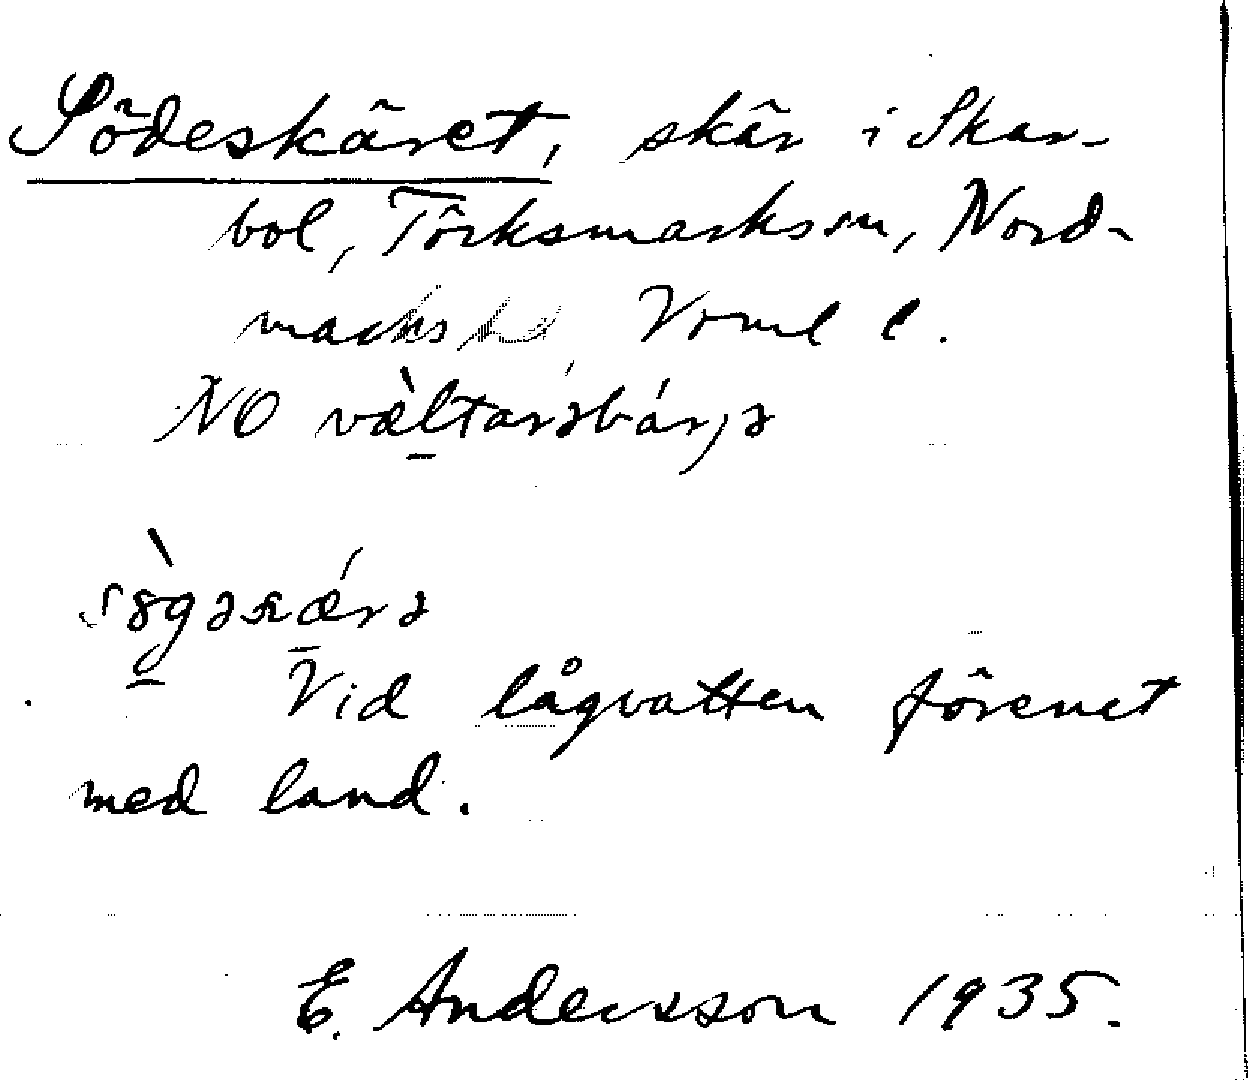 Södeskäret, skär i Skar-
bol, Törksmarks sn, Nord-
marks hd Vrml l.
NO væ̀ltarəbárjə
sògəskǽrə
Vid lågvatten förenet
med land.
E. Andersson 1935.